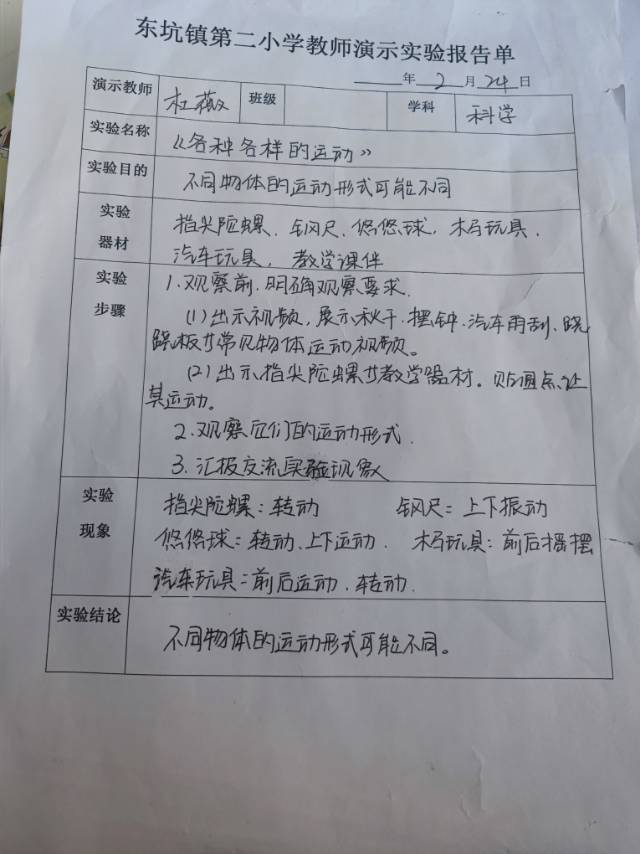 东坑镇第二小学教师演示实验报告单
年 2 月 24 日
演示教师 杜薇 班级 学科 科学
实验名称 《各种各样的运动》
实验目的 不同物体的运动形式可能不同
实验器材 指尖陀螺、钢尺、悠悠球、木马玩具、
汽车玩具、教学课件
实验步骤 1.观察前,明确观察要求.
(1)出示视频,展示秋千.摆钟.汽车雨刮.跷
跷板等常见物体运动视频。
(2)出示指尖陀螺等教学器材。贴圆点,让
其运动。
2.观察它们的运动形式.
3.汇报交流实验现象
实验现象 指尖陀螺:转动 钢尺:上下振动
悠悠球:转动、上下运动. 木马玩具:前后摇摆
汽车玩具:前后运动.转动.
实验结论 不同物体的运动形式可能不同。